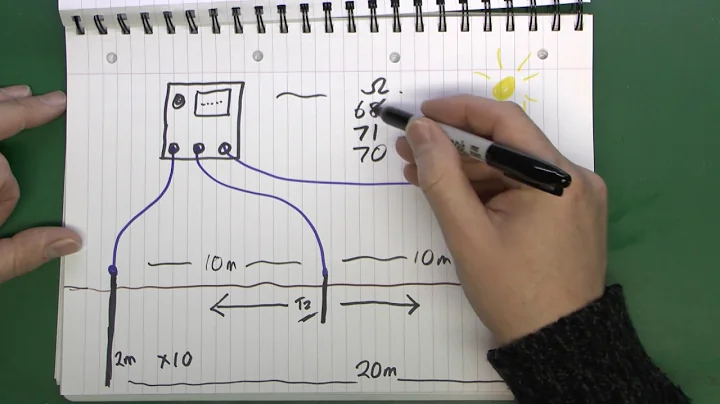 Ω
68
71
70
10m
10m
T2
2m x10
20m